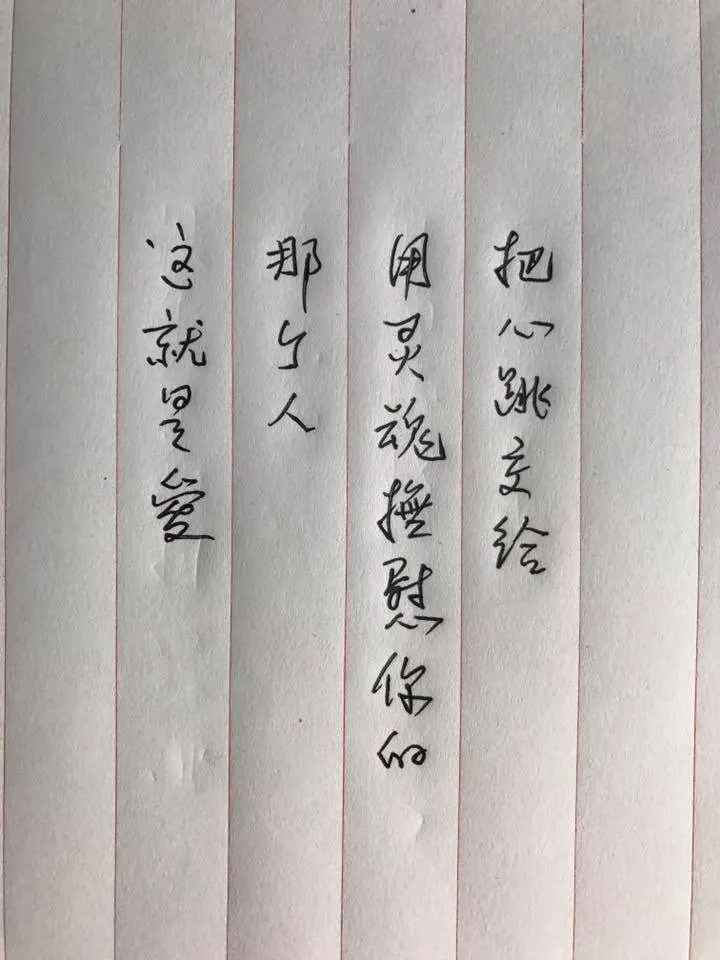 把心跳交给
用灵魂撫慰你的
那个人
这就是愛